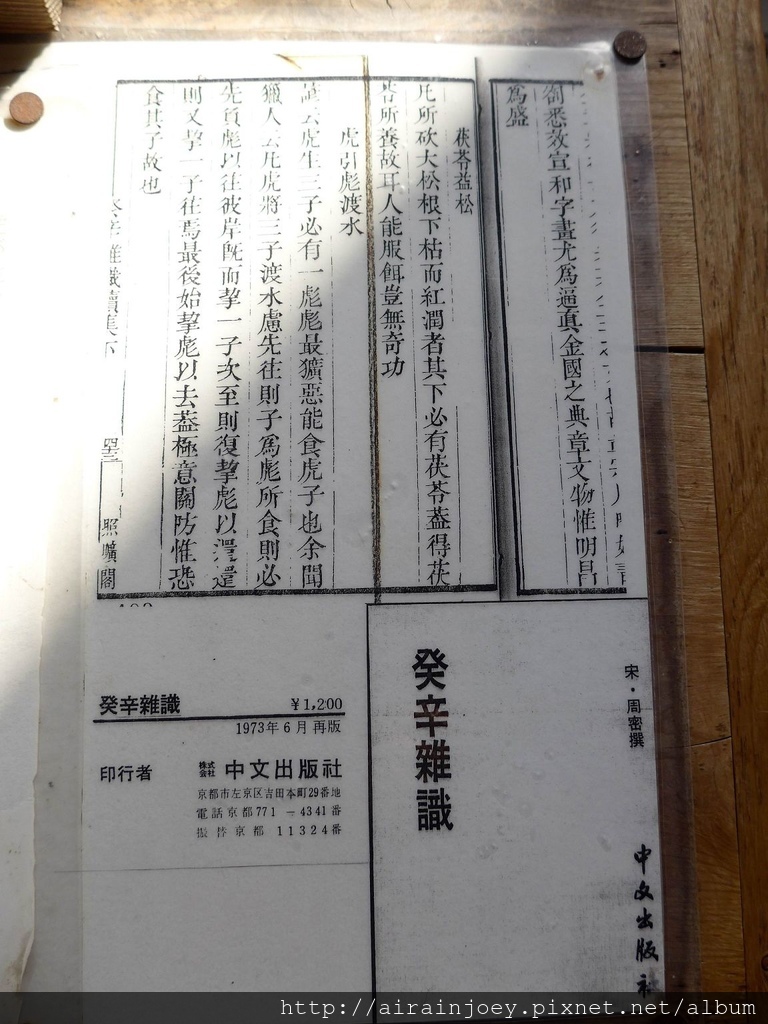 芻悉效宣和字畫尤爲逼眞金國之典章文物惟明昌
爲盛
茯苓益松
凡所砍大松根下枯而紅潤者其下必有茯苓蓋得茯
苓所養故耳人能服餌豈無奇功
虎引彪渡水
諺云虎生三子必有一彪彪最獷惡能食虎子也余聞
獵人云凡虎將三子渡水慮先往則子爲彪所食則必
先負彪以往彼岸旣而挈一子次至則復挈彪以還還
則又挈一子往焉最後始挈彪以去蓋極意關防惟恐
食其子故也
癸辛雜識續集下
照曠閣
宋・周密撰
癸辛雜識
中文出版社
癸辛雜識 ¥1,200
1973年6月再版
印行者 株式会社 中文出版社
京都市左京区吉田本町29番地
電話京都771-4341番
振替京都 11324番
http://airainjoey.pixnet.net/album